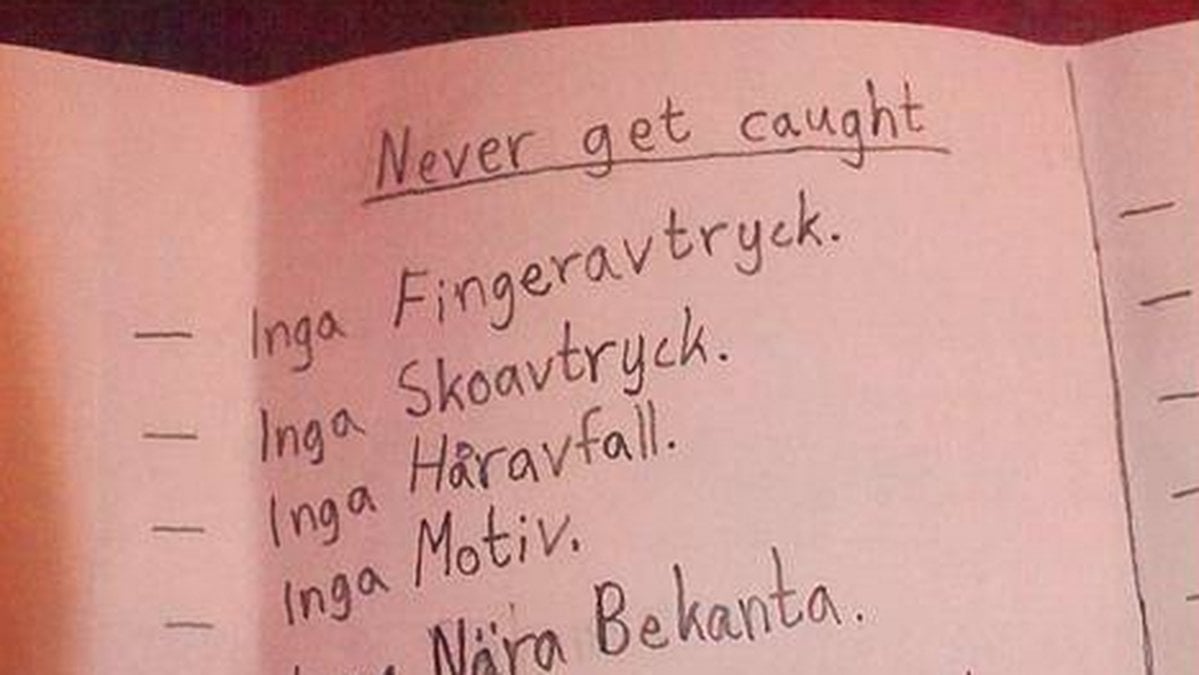 Never get caught
— Inga Fingeravtryck.
— Inga Skoavtryck.
— Inga Håravfall.
— Inga Motiv.
— Nära Bekanta.